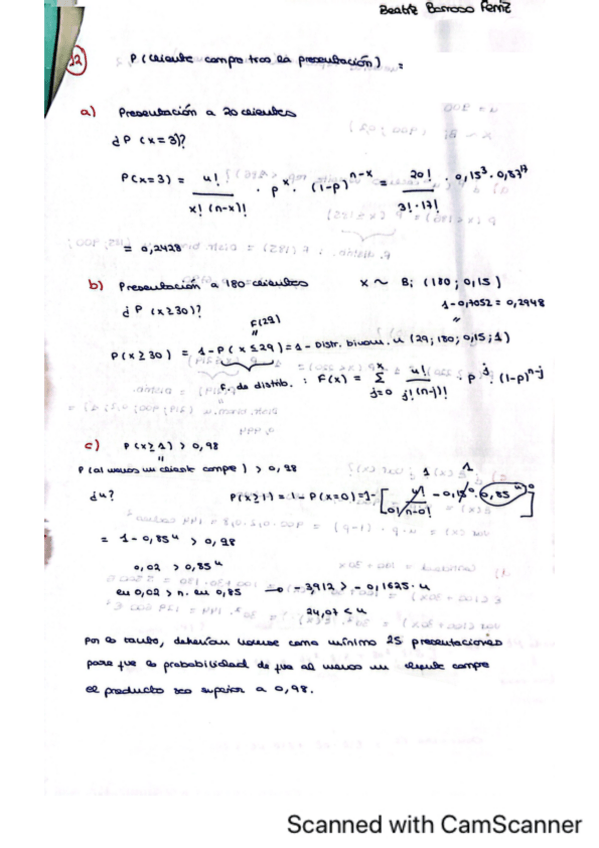 Beatriz Barroso
12
P (cliente compre tras la presentación) =
a) Presentación a 20 clientes
¿P (x=3)?
P(x=3) = n! / x! (n-x)! · p^x · (1-p)^n-x = 20! / 3! · 17! · 0,15^3 · 0,85^17
= 0,2428
b) Presentación a 180 clientes x ~ Bi (180; 0,15)
¿P (x≥30)? F(29) 1-0,7052 = 0,2948
P(x≥30) = 1-P(x≤29) = 1-Distr. binom. n (29; 180; 0,15; 1)
F. de distrib. : F(x) = Σ x j=0 n! / j! (n-j)! · p^j · (1-p)^n-j
c) P(x≥1) > 0,98
P (al menos un cliente compre) > 0,98
¿n? P(x≥1) = 1-P(x=0) = 1-[ n! / 0! n-0! · 0,15^0 · 0,85^n ]
= 1-0,85^n > 0,98
0,02 > 0,85^n
ln 0,02 > n. ln 0,85 → -3,912 > -0,1625 · n
24,07 < n
Por lo tanto, deberían hacerse como mínimo 25 presentaciones
para que la probabilidad de que al menos un cliente compre
el producto sea superior a 0,98.
Scanned with CamScanner